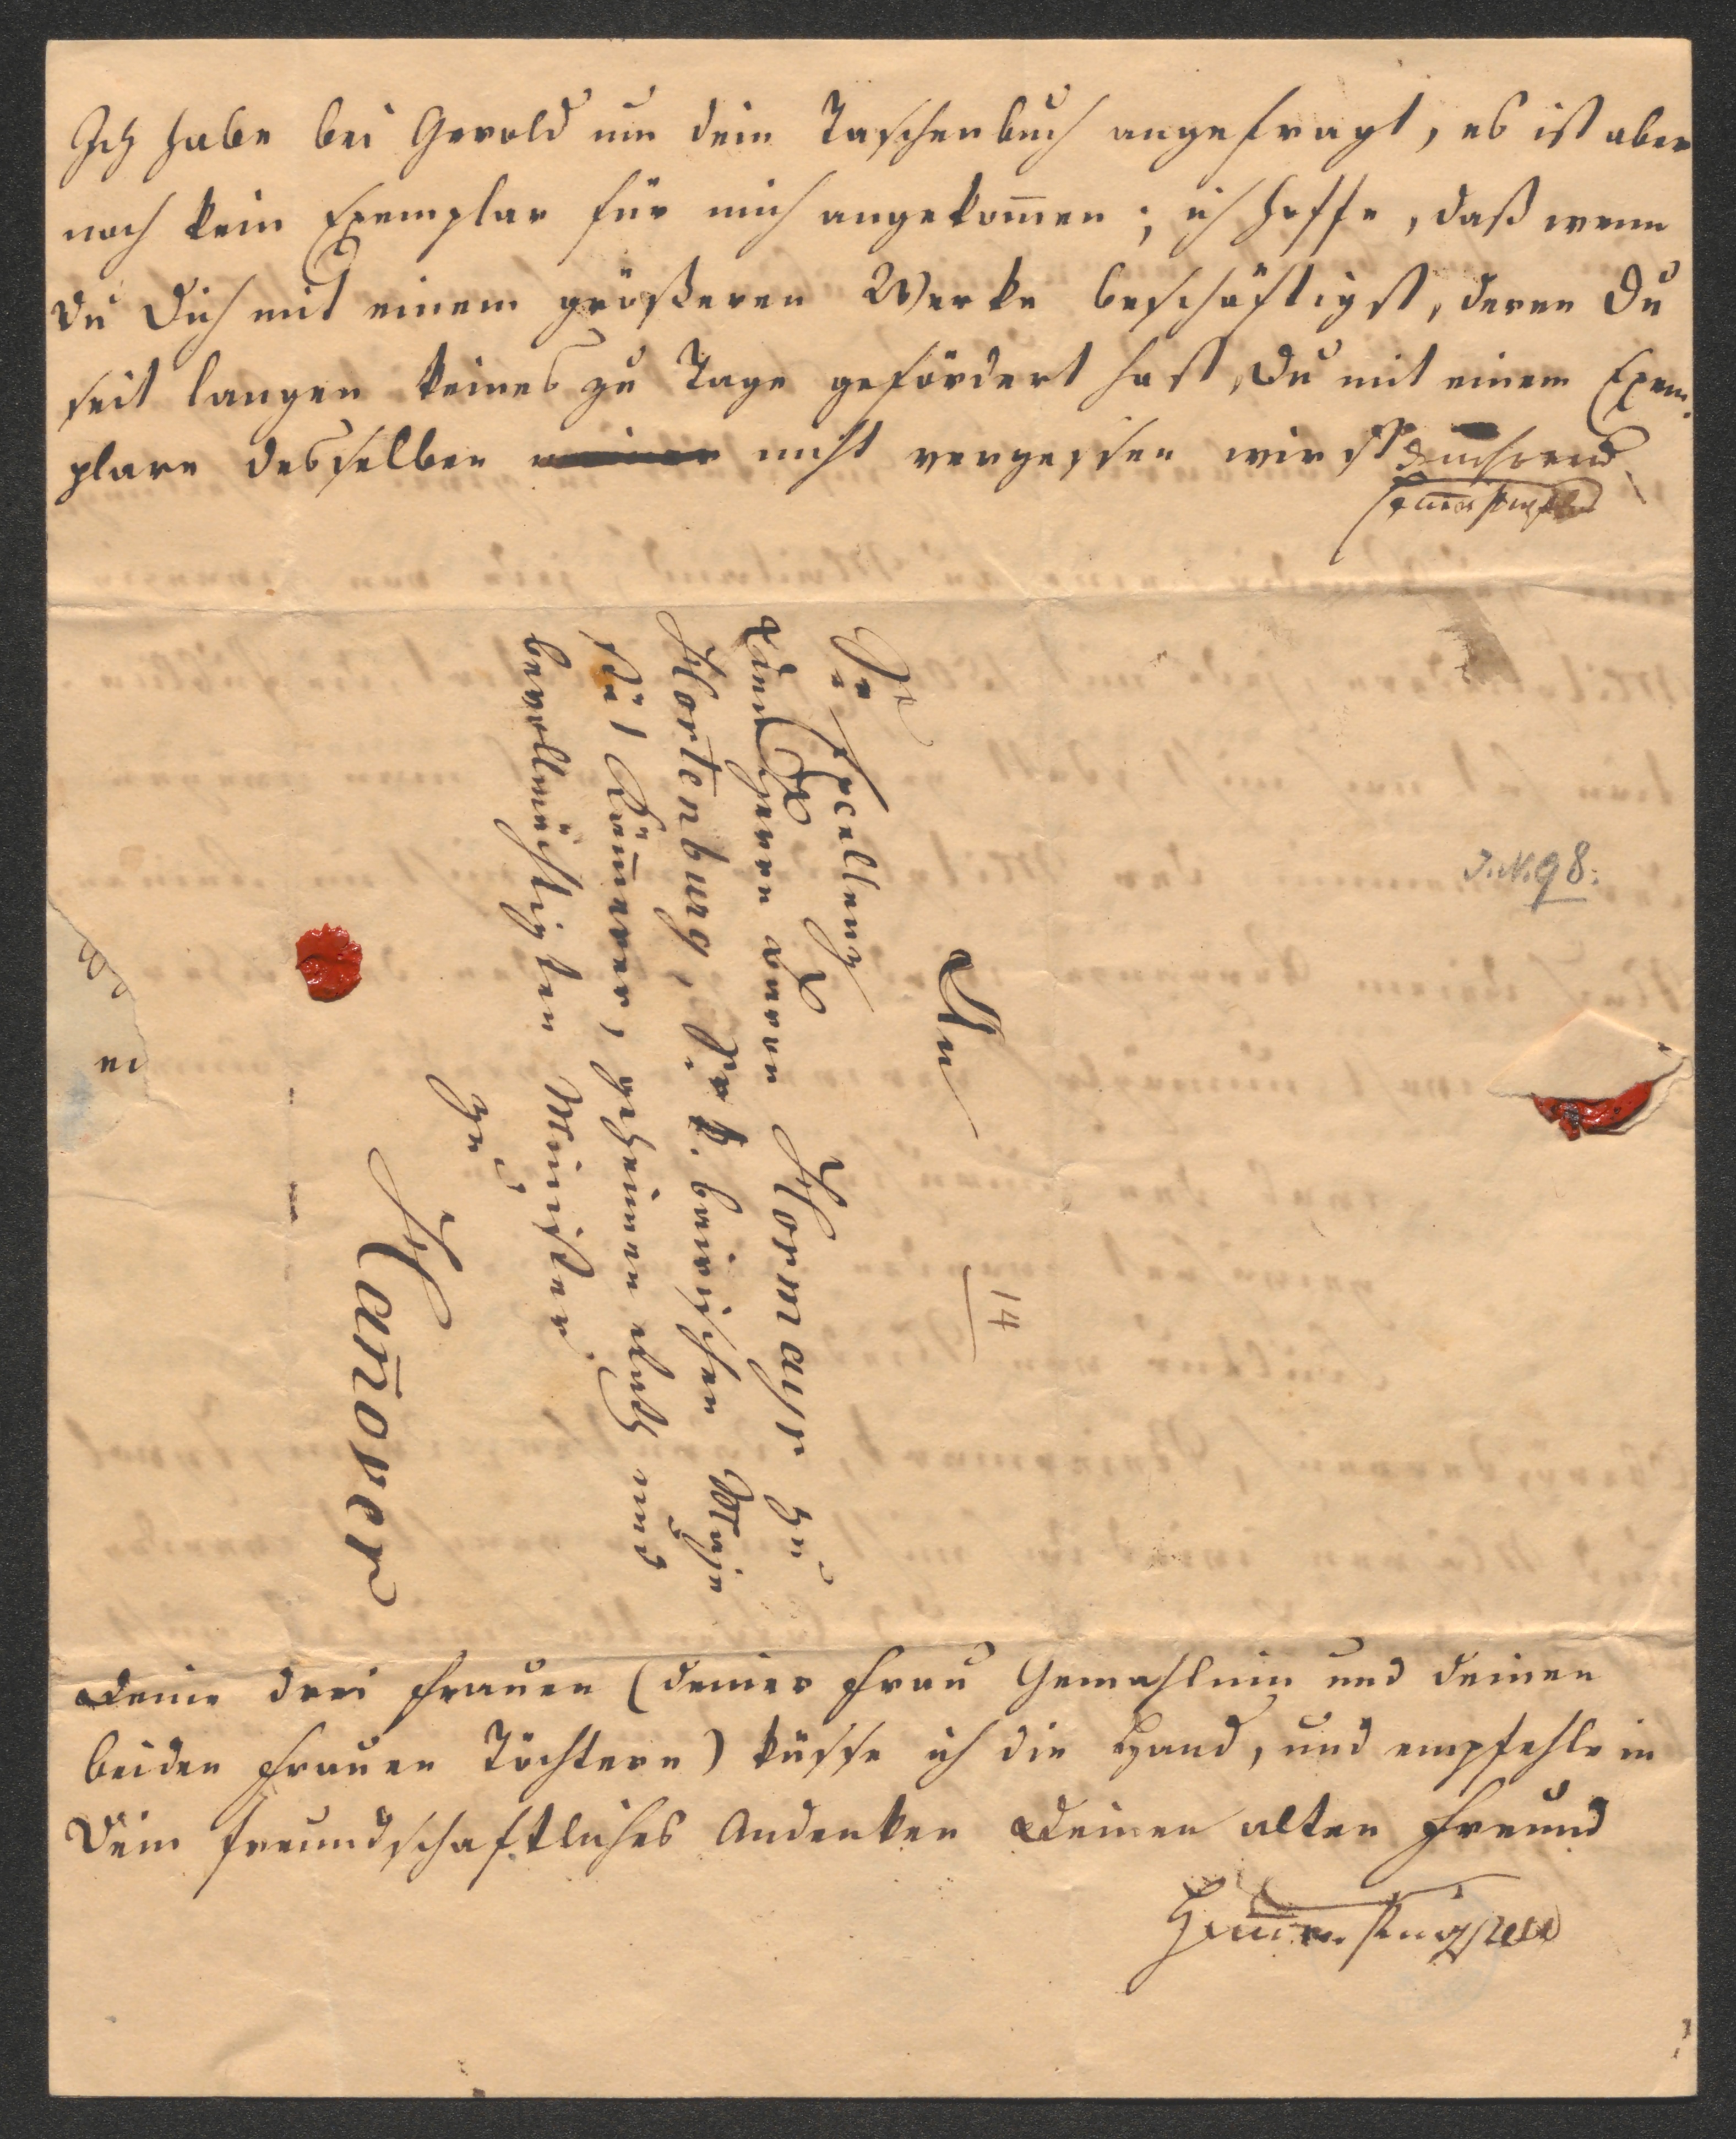 Ich habe bei Gerold um dein Taschenbuch angefragt, es ist aber
noch kein Exemplar für mich angekom̄en; ich hoffe, daß wenn
du dich mit einem größeren Werke beschäftigst, deren Du
seit langen keines zu Tage gefördert hast, Du mit einem Exem-
plare desselben nicht vergessen wirst
An
Se Excellenz
den Herrn Herrn Hormayr zu
Hortenburg, Sr k. bairischen Maje
stät Käm̄erer, geheimen Rath und
bevollmächtigten Minister.
zu
Han̄over
14
J.N. 98.
ei
Deine drei Frauen (deiner Frau Gemahlinn und deinen
beiden Frauen Töchtern) küsse ich die Hand, und empfehle in
Dein freundschaftliches Andenken Deinen alten Freund
Hammer-Purgstall